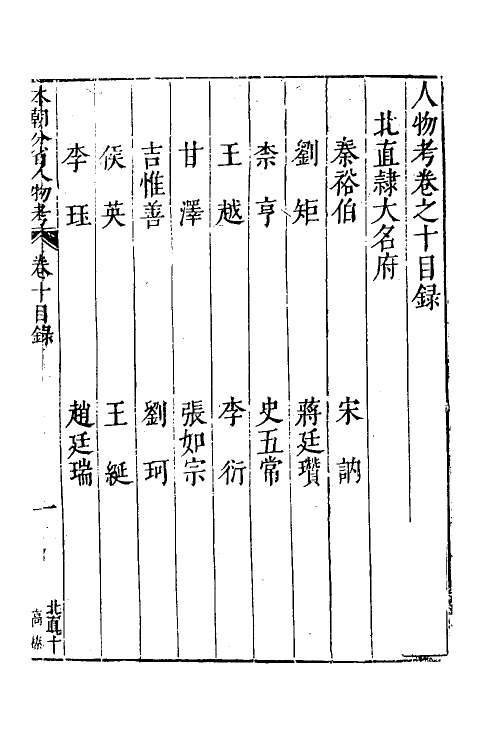 人物考卷之十目録
北直隷大名府
秦裕伯　宋訥
劉矩　蔣廷瓚
柰亨　史五常
王越　李衍
甘澤　張如宗
吉惟善　劉珂
侯英　王綖
李珏　趙廷瑞
本朝分省人物考　卷十目錄　一　北直十